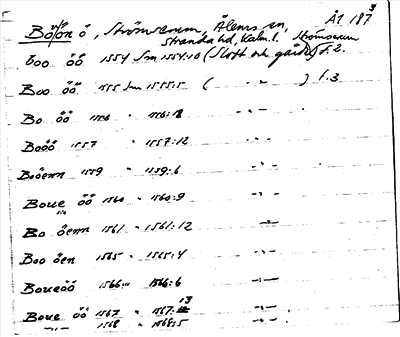 Bööön ö, Strömserum, Ålems sn, Å1 187 3
Stranda hd, Kalm. l. Strömserum
Boo öö 1554 Sm 1554:10 (Slott och gård) f. 2.
Boo öö 1555 Sm 1555:5 ( - " - ) f. 3
Bo öö 1556 " 1556:18 - " -
Booö 1557 " 1557:12 - " -
Booenn 1559 " 1559:6 - " -
Boue öö 1560 " 1560:9 - " -
sic
Bo öenn 1561 " 1561:12 - " -
Boo öen 1565 " 1565:4 - " -
Boueöö 1566 " 1566:6 - " -
Boue öö 1567 " 1567:13 - " -
- " - 1568 " 1568:5 - " -